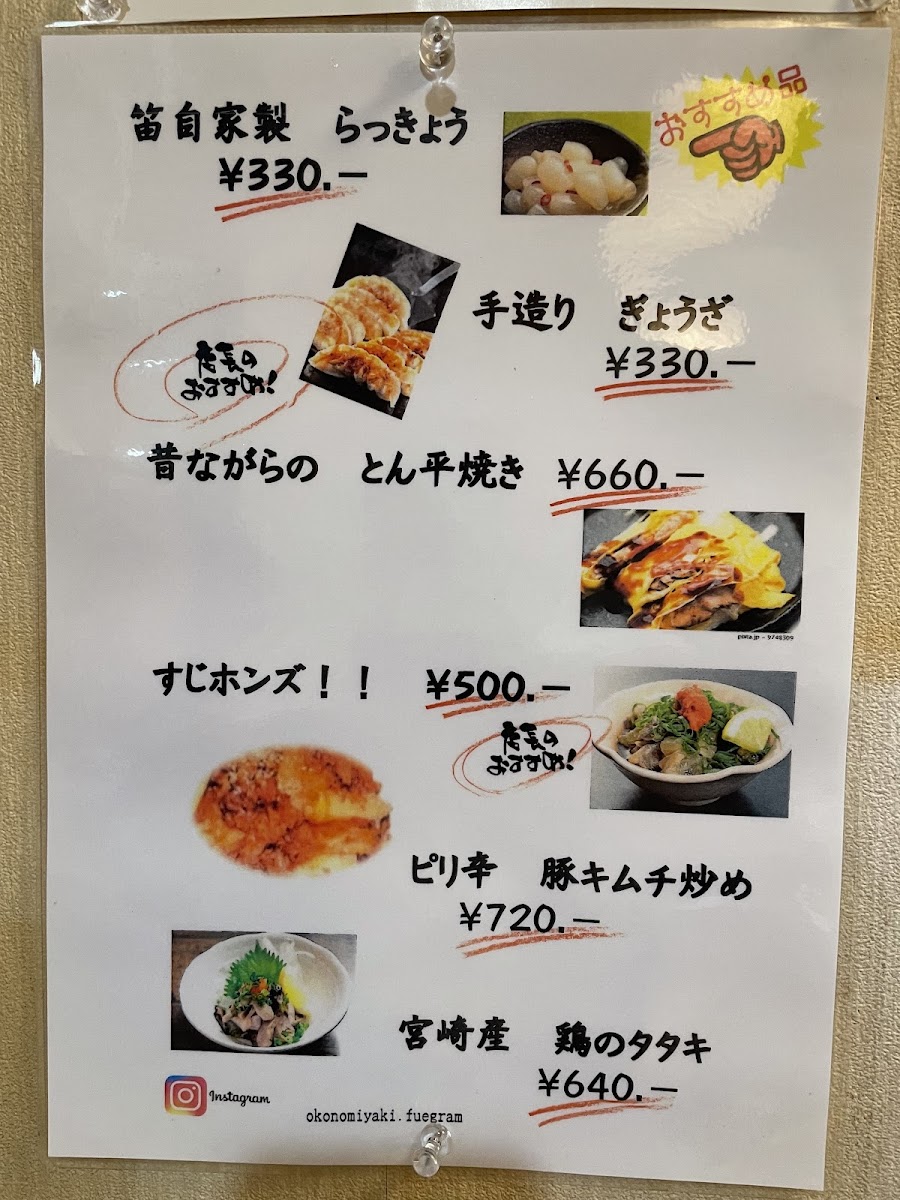 おすすめ品
笛自家製 らっきょう
¥330.-
手造り ぎょうざ
¥330.-
店長の
おすすめ!
昔ながらの とん平焼き ¥660.-
pixta.jp - 9748309
すじホンズ！！ ¥500.-
店長の
おすすめ!
ピリ辛 豚キムチ炒め
¥720.-
宮崎産 鶏のタタキ
¥640.-
Instagram
okonomiyaki.fuegram